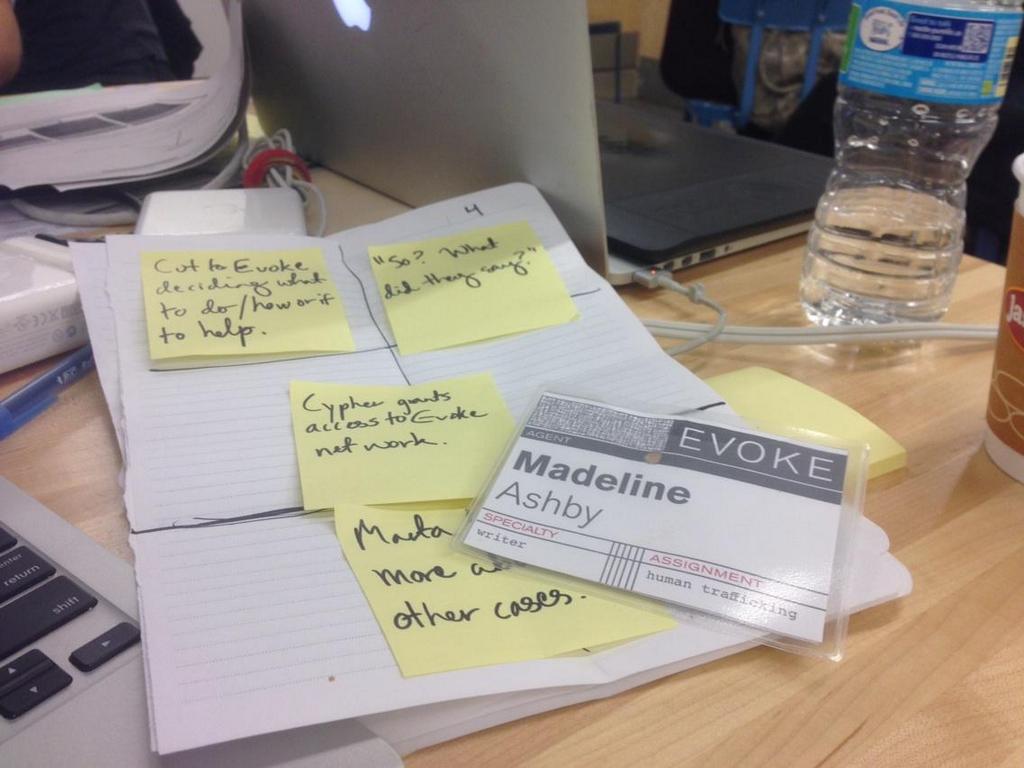 4
Cut to Evoke
deciding what
to do/how or if
to help.
"So? What
did they say?"
Cypher grants
access to Evoke
network.
AGENT
EVOKE
Madeline
Ashby
SPECIALTY
writer
ASSIGNMENT
human trafficking
more
other cases.
enter
return
shift